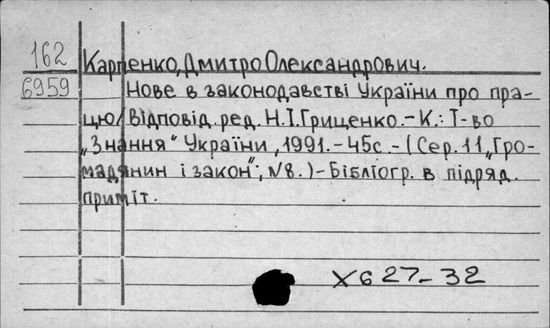 162
6959
Карпенко, Дмитро Олександрович.
Нове в законодавстві України про пра-
цю/Відповід. ред. Н.І. Гриценко.-К.: Т-во
„Знання" України, 1991.-45с.-(Сер. 11 „Гро-
мадянин і закон"; №8.)-Бібліогр. в підряд.
приміт.
Х627-32